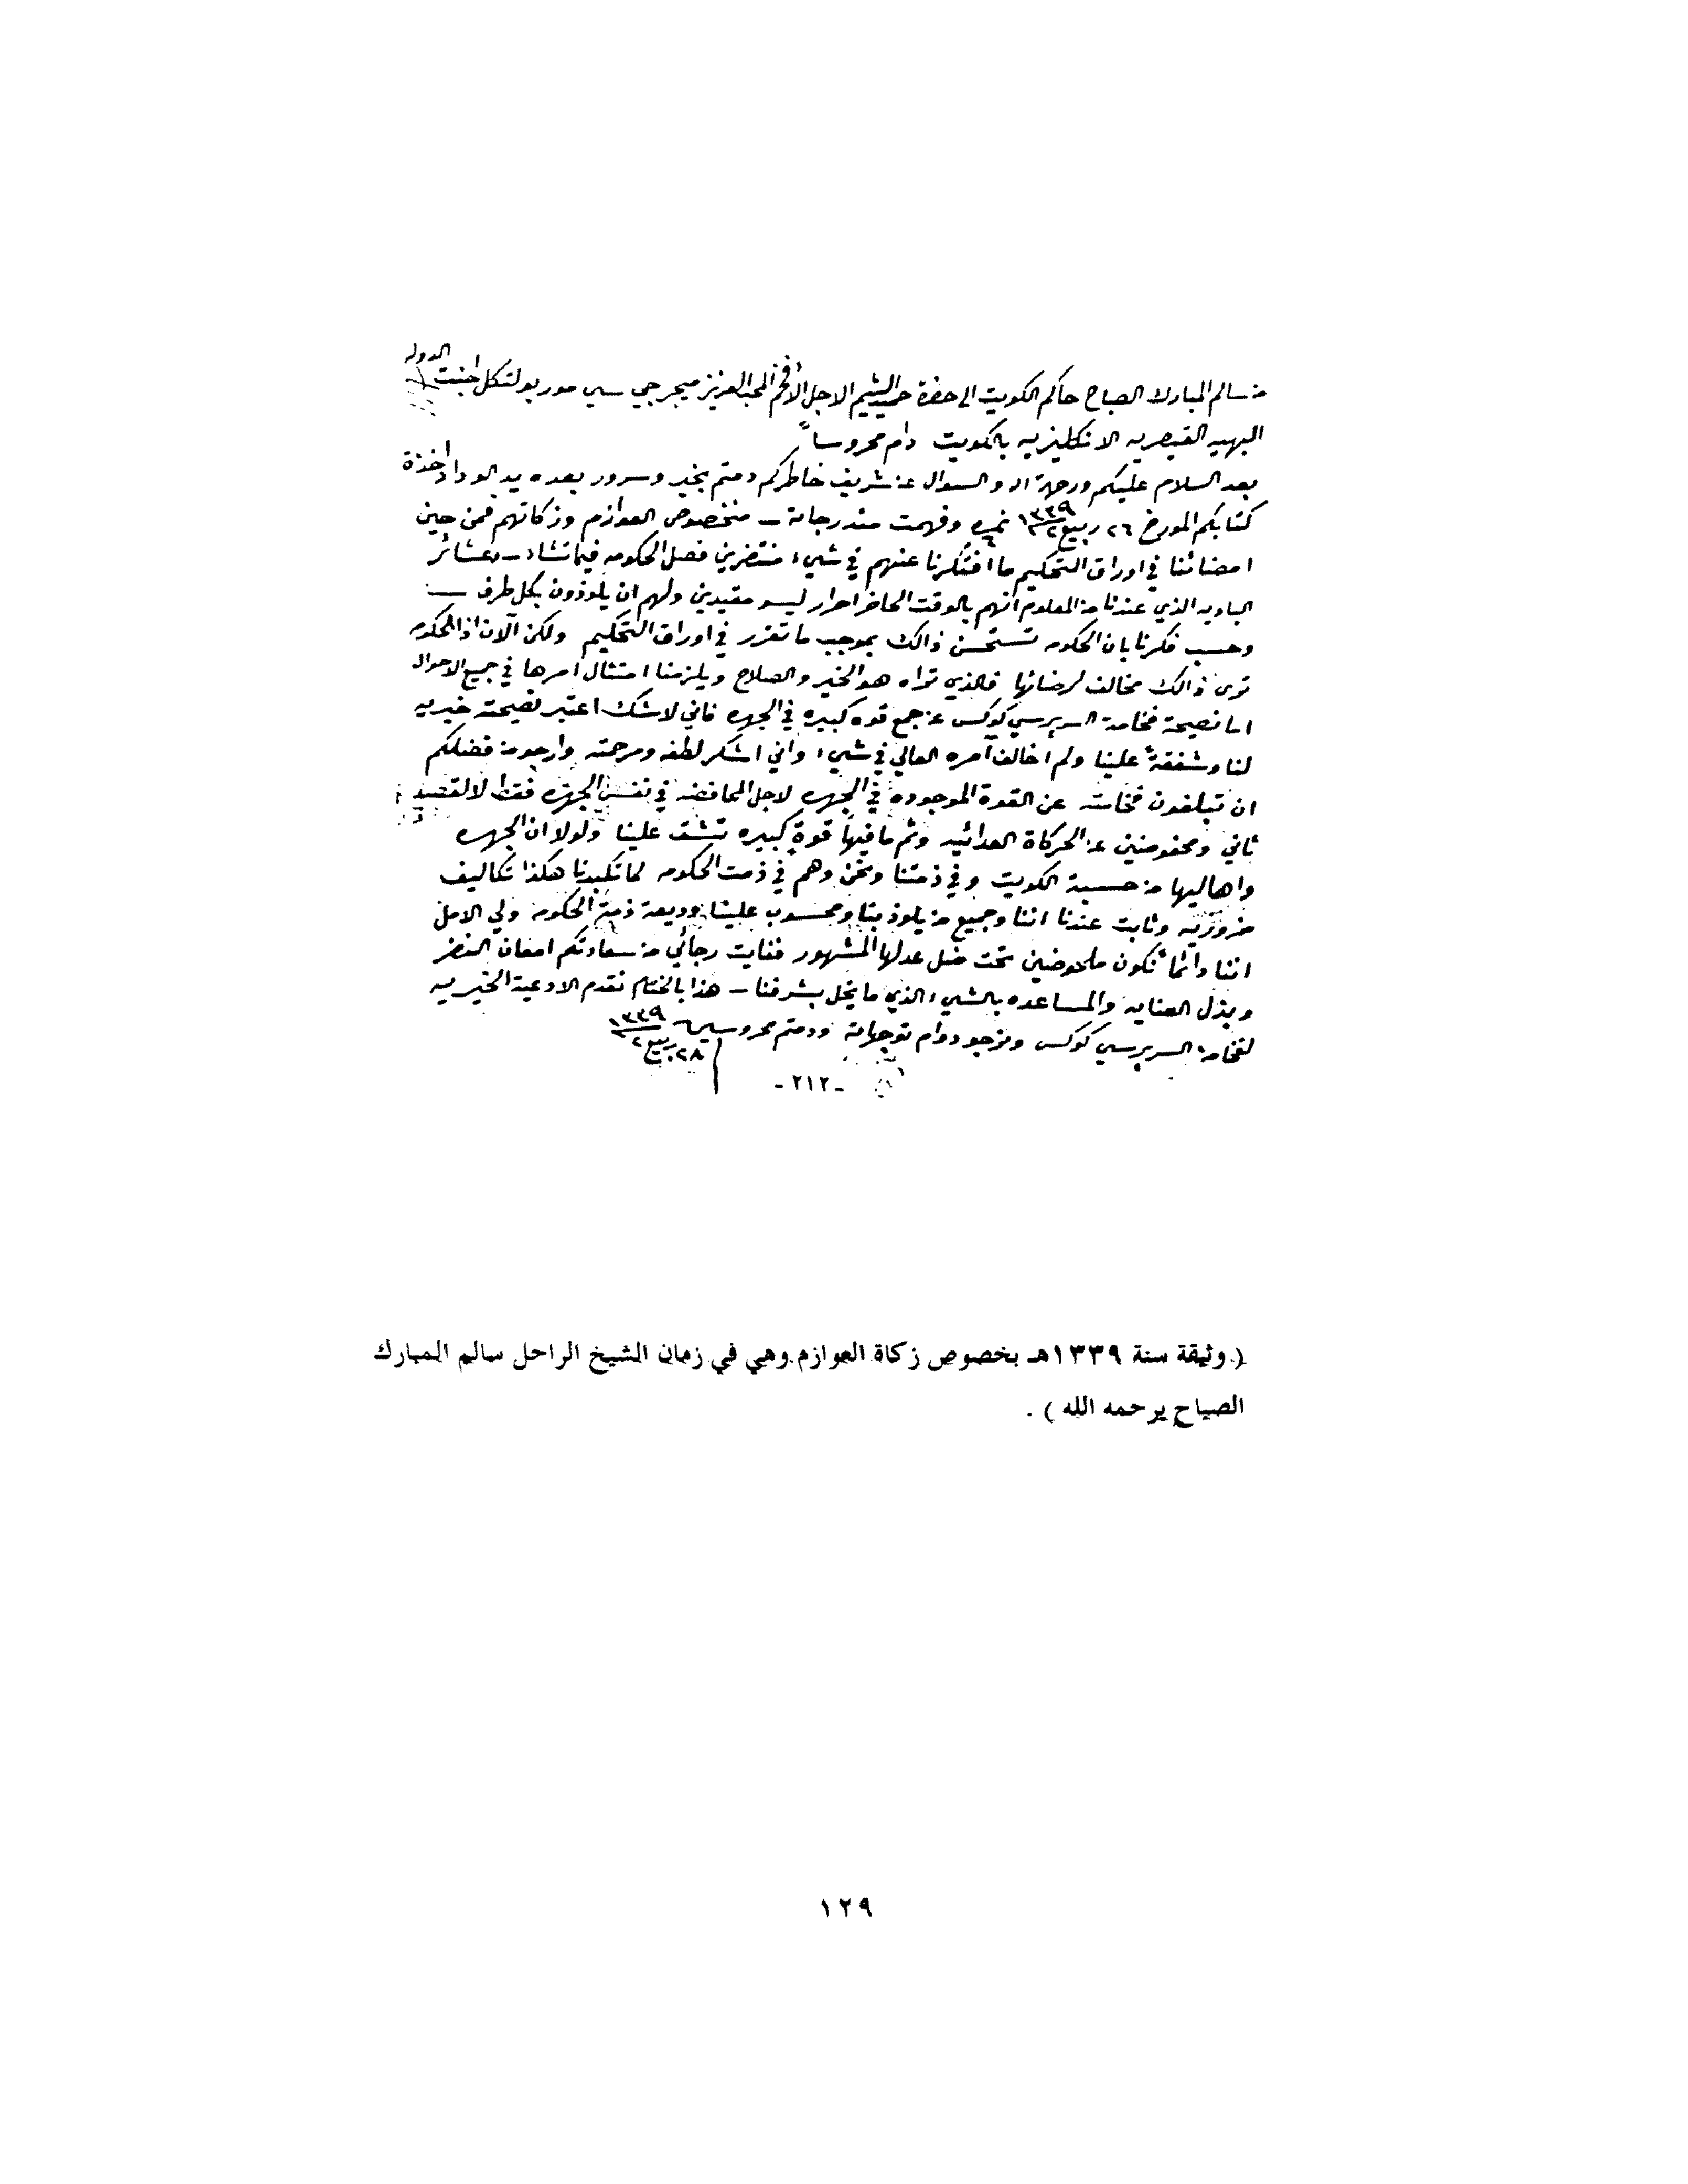 من سالم المبارك الصباح حاكم الكويت الى حضرة حميد الشيم الاجل الأفخم المحب العزيز ميجر جي سي مور بولتكل اجنت الدوله
البهيه القيصريه الانكليزيه بالكويت دام محروساً
بعد السلام عليكم ورحمة الله والسوال عن شريف خاطركم دمتم بخير وسرور بعده بيد الوداد اخذة
كتابكم المورخ ٢٦ ربيع٢ ١٣٣٩ نمره ٦ وفهمت مندرجاته – منخصوص العوازم وزكاتهم فمن حين
امضائنا في اوراق التحكيم ما افتكرنا عنهم في شيء منتضرين فصل الحكومه فيما تشاء – وعشائر
الباديه الذي عندنا من المعلوم انهم بالوقت الحاضر احرار ليسو مقيدين ولهم ان يلوذون بكل طرف –
وحسب فكرنا بان الحكومه تستحسن ذالك بموجب ما تقرر في اوراق التحكيم ولكن الآن اذا الحكومه
ترى ذالك مخالف لرضائها فالذي تراه هو الخير والصلاح ويلزمنا امتثال امرها في جميع الاحوال
اما نصيحة فخامة السر برسي كوكس عن جمع قوه كبيره في الجهره فاني لاشك اعتبر نصيحته خيريه
لنا وشفقةً علينا ولم اخالف آمره العالي في شيء واني اشكر لطفه ومرحمته وارجو من فضلكم
ان تبلغون فخامته عن القوة الموجوده في الجهره لاجل المحافضه في نفس الجهره فقط لا لقصد
ثاني ومخفوضين عن الحركاة العدائيه وثم ما فيها قوة كبيره تشق علينا ولولا ان الجهره
واهاليها من حسبة الكويت وفي ذمتنا ونحن وهم في ذمت الحكومه لما تكبدنا هكذا تكاليف
ضروريه وثابت عندنا اننا وجميع من يلوذ بنا ومحسوب علينا وديعة ذمة الحكومه ولي الامل
اننا دائماً نكون ملحوضين تحت ضل عدلها المشهور فغايت رجائي من سعادتكم امعان النضر
وبذل العنايه والمساعده بالشيء الذي ما يخل بشرفنا – هذا بالختام نقدم الادعية الخيريه
لفخامة السر برسي كوكس ونرجو دوام توجهاته ودمتم محروسين
٢٨ ربيع٢ ١٣٣٩
- ٢١٢ -
( وثيقة سنة ١٣٣٩هـ بخصوص زكاة العوازم وهي في زمان الشيخ الراحل سالم المبارك
الصباح يرحمه الله ) .
١٢٩